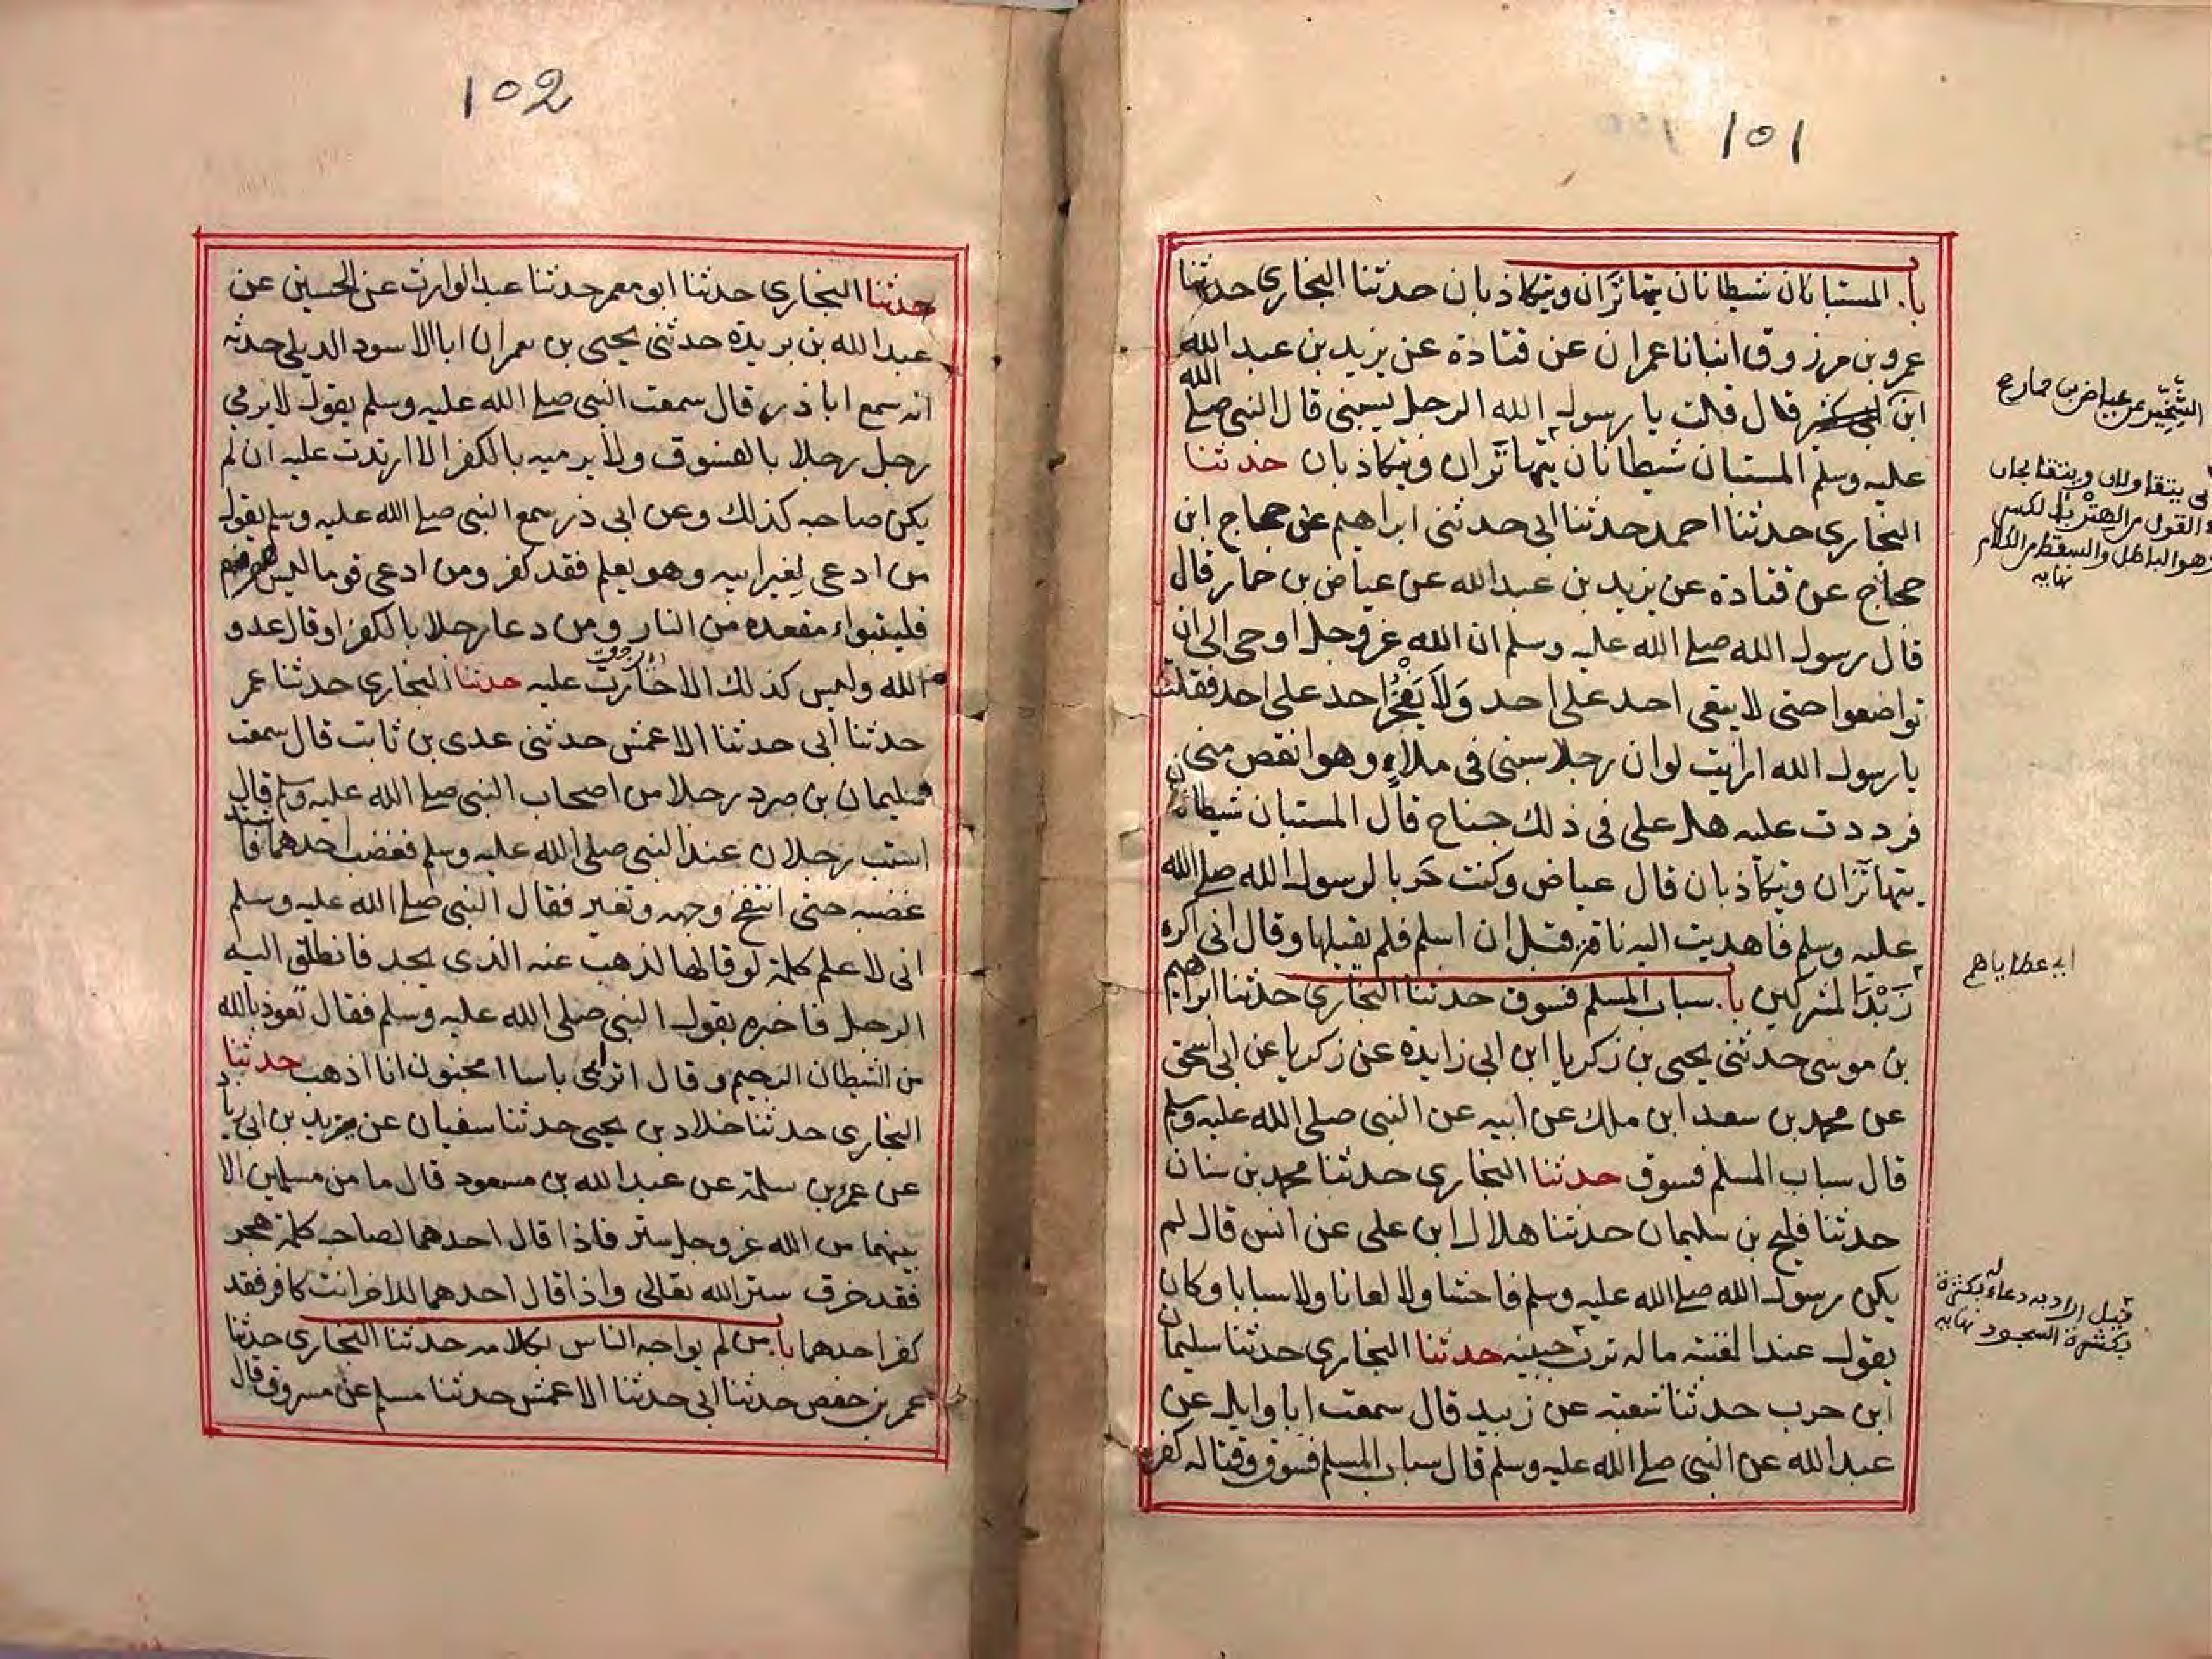 101
با. المستبانان شيطانان يتهاتَران ويتكاذبان حدثنا البخارى حدثنا
عمرو بن مرزوق انبانا عمران عن قتادة عن يزيد بن عبد الله
ابن قال قلت يا رسول الله الرجل يسبنى قال النبى صلى الله
عليه وسلم المستبان شيطانان يتهاتران ويتكاذبان حدثنا
البخارى حدثنا احمد حدثنا ابى حدثنى ابراهيم عن حجاج ابن
حجاج عن قتادة عن يزيد بن عبد الله عن عياض بن حمار قال
قال رسول الله صلى الله عليه وسلم ان الله عزوجل اوحى الى ان
تواضعوا حتى لا يبقى احد على احد وَلاَ يَفْخُرُ احد على احد فقلت
يا رسول الله ارايت لو ان رجلا سبنى فى ملاءٍ وهو انقص منى
فرددت عليه هل على فى ذلك جناح قال المستبان شيطانان
يتهاتران ويتكاذبان قال عياض وكنت حَربا لرسول الله صلى الله
عليه وسلم فاهديت اليه ناقة قبل ان اسلم فلم يقبلها وقال انى اكره
زَبْدَ المشركين با. سباب المسلم فسوق حدثنا البخارى حدثنا ابراهيم
بن موسى حدثنى يحيى بن زكريا ابن ابى زايدة عن زكريا عن ابى اسحق
عن محمد بن سعد ابن ملك عن ابيه عن النبى صلى الله عليه وسلم
قال سباب المسلم فسوق حدثنا البخارى حدثنا محمد بن سنان
حدثنا فليح بن سليمان حدثنا هلال ابن على عن انس قال لم
يكن رسول الله صلى الله عليه وسلم فاحشا ولا لعانا ولا سبابا وكان
يقول عند المعتبة ما له ترب جبينه حدثنا البخارى حدثنا سليمان
ابن حرب حدثنا شعبة عن زبيد قال سمعت ابا وايل عن
عبد الله عن النبى صلى الله عليه وسلم قال سباب المسلم فسوق وقتاله كفر
الشِّخِّير عن عياض بن حمار ع
يتقاولان ويتقابحان
القول من الهِتْر بالكسر
وهو الباطل والسقط من الكلام
نهايه
اى عطاياهم
قيل اراد به دعاء له بكثرة
بكثرة السجود نهايه
102
حدثنا البخارى حدثنا ابو معمر حدثنا عبد الوارث عن الحسين عن
عبد الله بن بريدة حدثنى يحيى بن يعمر ان ابا الاسود الديلى حدثه
انه سمع ابا ذر قال سمعت النبى صلى الله عليه وسلم يقول لا يرمى
رجل رجلا بالفسوق ولا يرميه بالكفر الا ارتدت عليه ان لم
يكن صاحبه كذلك وعن ابى ذر سمع النبى صلى الله عليه وسلم يقول
من ادعى لغير ابيه وهو يعلم فقد كفر ومن ادعى قوما ليس هو منهم
فليتبواء مقعده من النار ومن دعا رجلا بالكفر او قال عدو
الله وليس كذلك الا حارت عليه حدثنا البخارى حدثنا عمر
حدثنا ابى حدثنا الاعمش حدثنى عدى بن ثابت قال سمعت
سليمان بن صرد رجلا من اصحاب النبى صلى الله عليه وسلم قال
استب رجلان عند النبى صلى الله عليه وسلم فغضب احدهما فاشتد
غضبه حتى انتفخ وجهه وتغير فقال النبى صلى الله عليه وسلم
انى لاعلم كلمة لو قالها لذهب عنه الذى يجد فانطلق اليه
الرجل فاخبره بقول النبى صلى الله عليه وسلم فقال تعوذ بالله
من الشيطان الرجيم وقال اترى باسا امجنون انا اذهب حدثنا
البخارى حدثنا خلاد بن يحيى حدثنا سفيان عن يزيد بن ابى زياد
عن عمرو بن سلمة عن عبد الله بن مسعود قال ما من مسلمين الا
بينهما من الله عزوجل ستر فاذا قال احدهما لصاحبه كلمة هجر
فقد خرق ستر الله تعالى واذا قال احدهما للاخر انت كافر فقد
كفر احدهما با. من لم يواجه الناس بكلامه حدثنا البخارى حدثنا
عمر بن حفص حدثنا ابى حدثنا الاعمش حدثنا مسلم عن مسروق قال